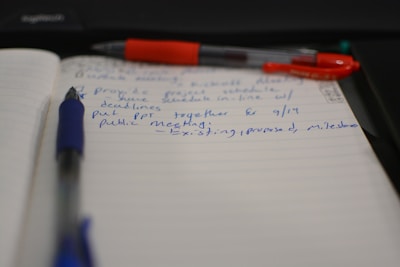 logitech
update meeting, kickoff
provide project schedule
- have schedule in-line w/
deadlines
put PPT together for 9/19
public meeting:
- Existing, proposed, milestone